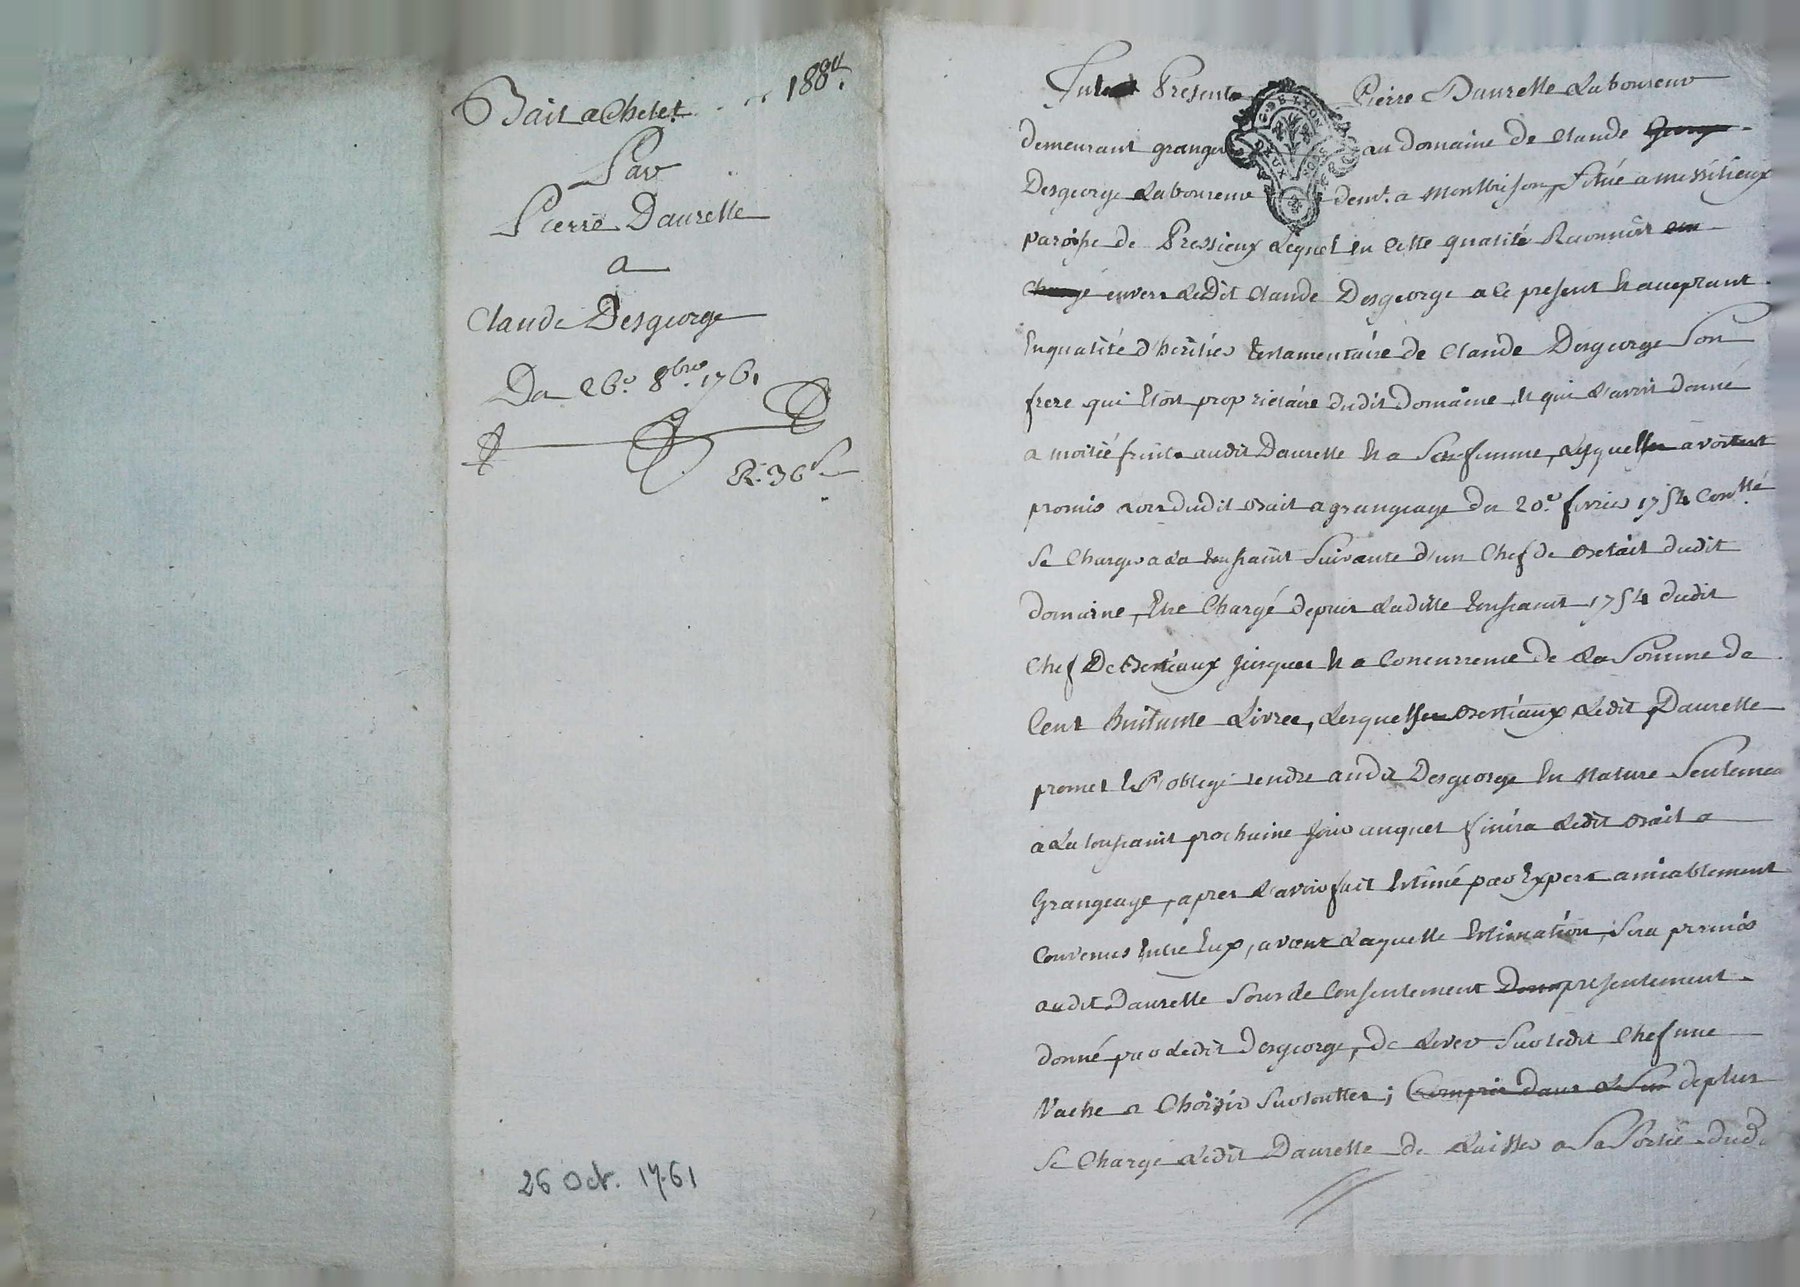 Bail a Chetel 188 lt.
Par
Pierre Daurelle
a
Claude Desgeorge
Du 26e. 8bre. 1761
R. 36 s
26 Oct. 1761
Presente Pierre Daurelle Laboureur
demeurant granger au domaine de Claude
Desgeorge Laboureur demt. a Montbrison, Situé a
paroisse de Pressieux Lequel en cette qualité Reconnoit
envers Ledit Claude Desgeorge a ce present et acceptant
En qualité d'heritier testamentaire de Claude Desgeorge Son
frere qui Etoit proprietaire dudit Domaine et qui L'avoit donné
a moitié fruits audit Daurelle et a Sa femme,
promis Lors dudit Bail a grangeage du 20e. fevrier 1754
Se Charger a La toussaint Suivante d'un Chef de Betail dudit
domaine, Etre Chargé depuis Laditte toussaint 1754 dudit
Chef De Bestiaux jusques et a Concurrence de La Somme de
Cent huitante Livres, Lesquelles Bestiaux Ledit Daurelle
promet et s'oblige rendre audit Desgeorge En Nature Seulement
a La toussaint prochaine jour auquel finira Ledit Bail a
Grangeage, apres L'avoir fait Estimé par Expert amiablement
Convenus Entre Eux, avant Laquelle Estimation, Sera permis
audit Daurelle Sous de Consentement presentement
donné par Ledit Desgeorge, de Lever Sur ledit Chef une
Vache a Choisir Sur touttes; Compris dans deplus
Se Charge Ledit Daurelle de Laisser a Sa Sortie dud.